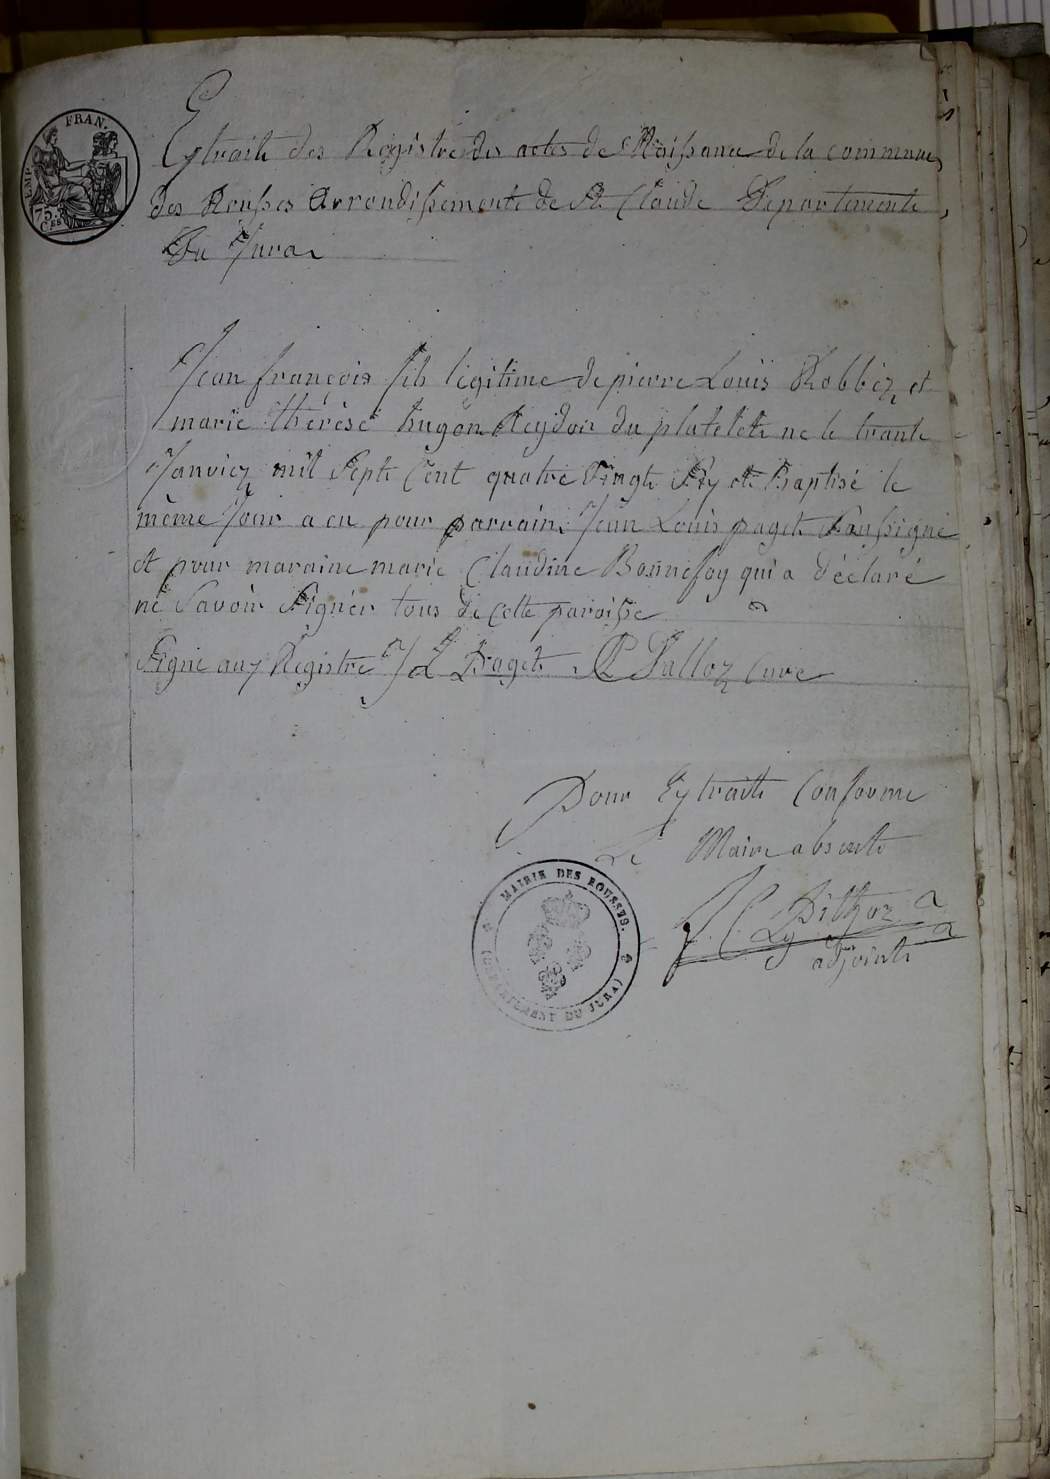 EMP. FRAN.
75.
Ces
Extraite des Registre des actes de Naissance de la commune
des Rousses Arrondissemente de St. Claude Departemente
Du Jura
Jean françois fils légitime de pierre Louis Robbéz et
marie thérèse hugon Reydor du platelete ne le trante
Janviez mil Sept Cent quatre Vingt Six et Baptisé le
même Jour a eu pour parrain Jean Louis paget Soussigné
et pour maraine marie Claudine Bonnefoy qui a déclaré
né Savoir Signér tous de cette paroisse
Signé aux Registre J L Paget Palloz Curé
Pour Extraite Conforme
Le Maire absente
adjointe
MAIRIE DES ROUSSES.
(DEPARTEMENT DU JURA)